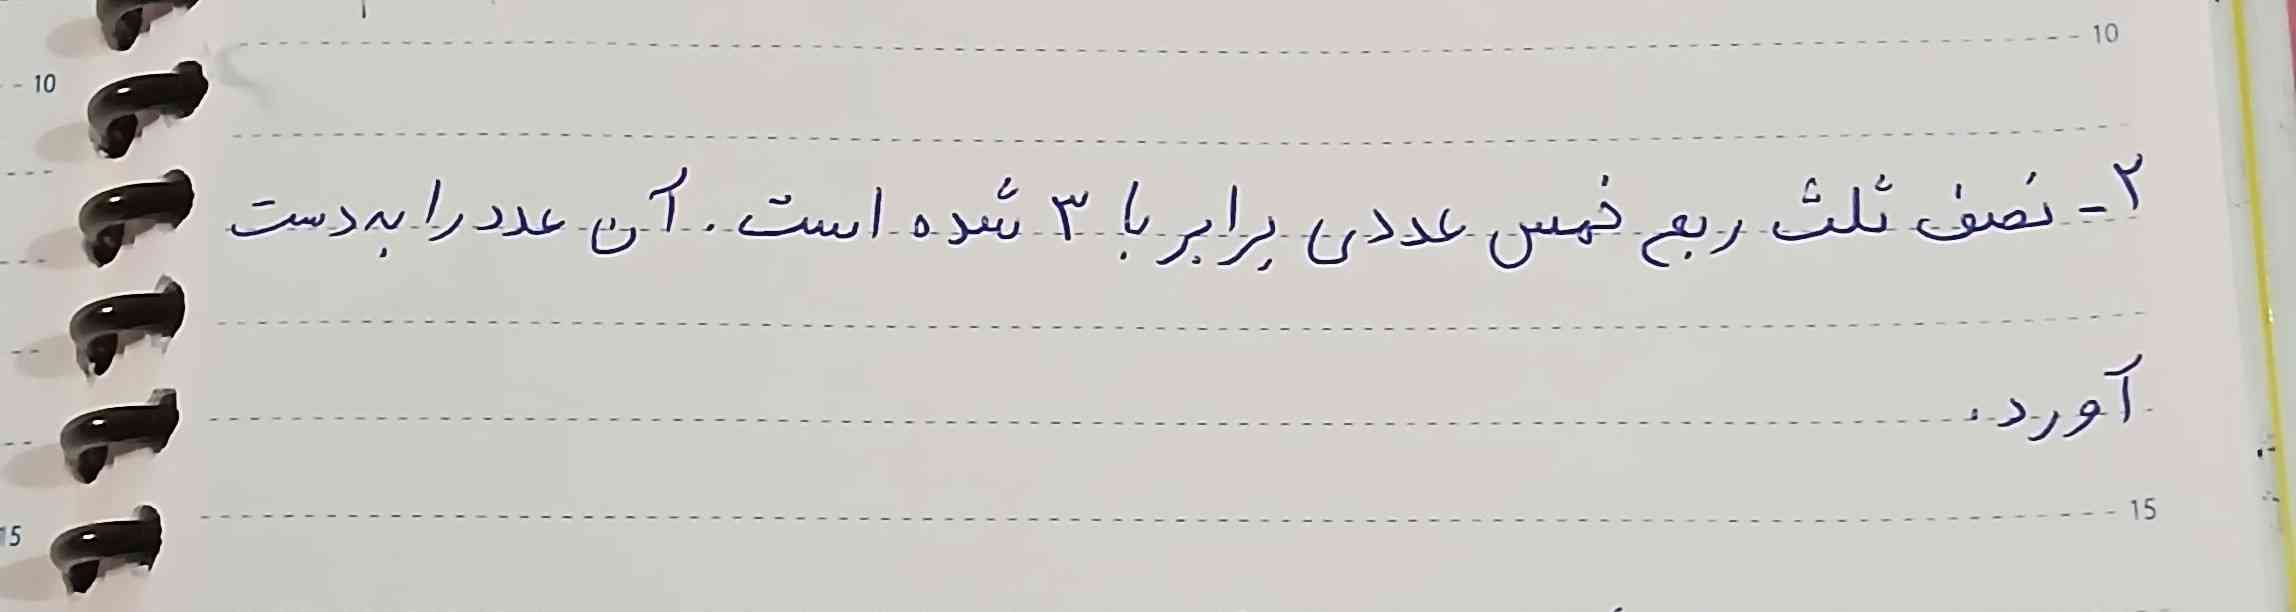 10
10
۲- نصف ثلث ربع خمس عددی برابر با ۳ شده است. آن عدد را به دست
آورد.
15
15